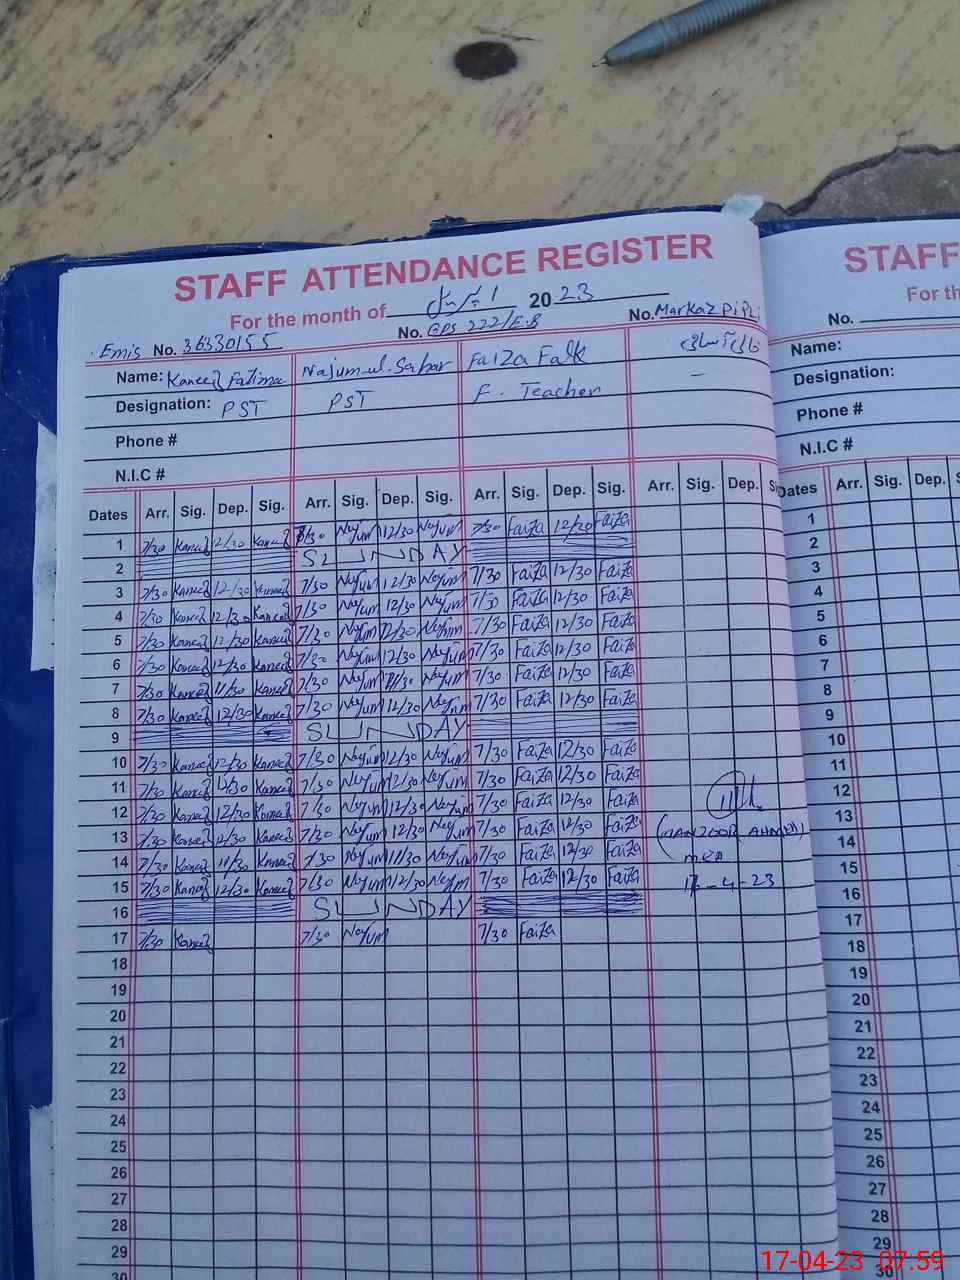 STAFF ATTENDANCE REGISTER
For the month of اپریل 2023
Emis No. 36330155 No. GPS 222/E.B No. Markaz PiPLi
Name: Kaneez Fatima Najum-ul-Sahar Faiza Falk
Designation: PST PST F. Teacher –
Phone #
N.I.C #
Dates Arr. Sig. Dep. Sig. Arr. Sig. Dep. Sig. Arr. Sig. Dep. Sig. Arr. Sig. Dep.
1 7/30 Kaneez 12/30 Kaneez 7/30 Najum 12/30 Najum 7/30 Faiza 12/30 Faiza
2 SUNDAY
3 7/30 Kaneez 12/30 Kaneez 7/30 Najum 12/30 Najum 7/30 Faiza 12/30 Faiza
4 7/30 Kaneez 12/30 Kaneez 7/30 Najum 12/30 Najum 7/30 Faiza 12/30 Faiza
5 7/30 Kaneez 12/30 Kaneez 7/30 Najum 12/30 Najum 7/30 Faiza 12/30 Faiza
6 7/30 Kaneez 12/30 Kaneez 7/30 Najum 12/30 Najum 7/30 Faiza 12/30 Faiza
7 7/30 Kaneez 11/30 Kaneez 7/30 Najum 11/30 Najum 7/30 Faiza 12/30 Faiza
8 7/30 Kaneez 12/30 Kaneez 7/30 Najum 12/30 Najum 7/30 Faiza 12/30 Faiza
9 SUNDAY
10 7/30 Kaneez 12/30 Kaneez 7/30 Najum 12/30 Najum 7/30 Faiza 12/30 Faiza
11 7/30 Kaneez 12/30 Kaneez 7/30 Najum 12/30 Najum 7/30 Faiza 12/30 Faiza
12 7/30 Kaneez 12/30 Kaneez 7/30 Najum 12/30 Najum 7/30 Faiza 12/30 Faiza
13 7/30 Kaneez 12/30 Kaneez 7/30 Najum 12/30 Najum 7/30 Faiza 12/30 Faiza (MANZOOR AHMAD)
14 7/30 Kaneez 11/30 Kaneez 7/30 Najum 11/30 Najum 7/30 Faiza 12/30 Faiza MEA
15 7/30 Kaneez 12/30 Kaneez 7/30 Najum 12/30 Najum 7/30 Faiza 12/30 Faiza 17-4-23
16 SUNDAY
17 7/30 Kaneez 7/30 Najum 7/30 Faiza
18
19
20
21
22
23
24
25
26
27
28
29
30
STAFF
For th
No.
Name:
Designation:
Phone #
N.I.C #
Dates Arr. Sig. Dep.
1
2
3
4
5
6
7
8
9
10
11
12
13
14
15
16
17
18
19
20
21
22
23
24
25
26
27
28
29
30
17-04-23 07:59